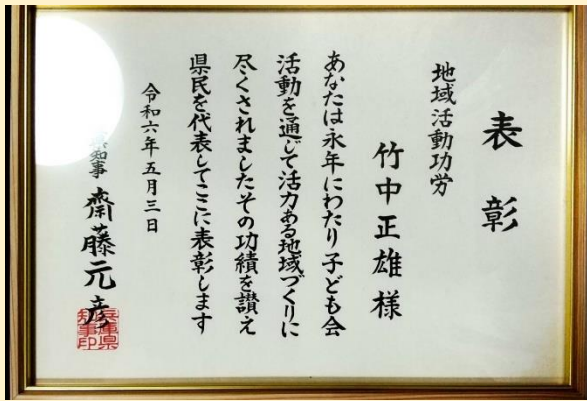 表彰
地域活動功労
竹中正雄様
あなたは永年にわたり子ども会
活動を通じて活力ある地域づくりに
尽くされましたその功績を讃え
県民を代表してここに表彰します
令和六年五月三日
県知事 齋藤元彦
兵庫県知事印